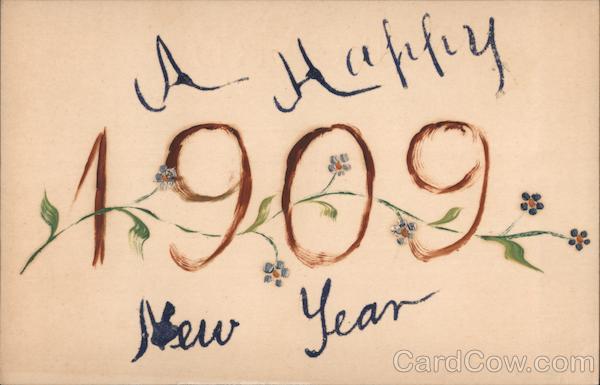 A Happy
1909
New Year
CardCow.com